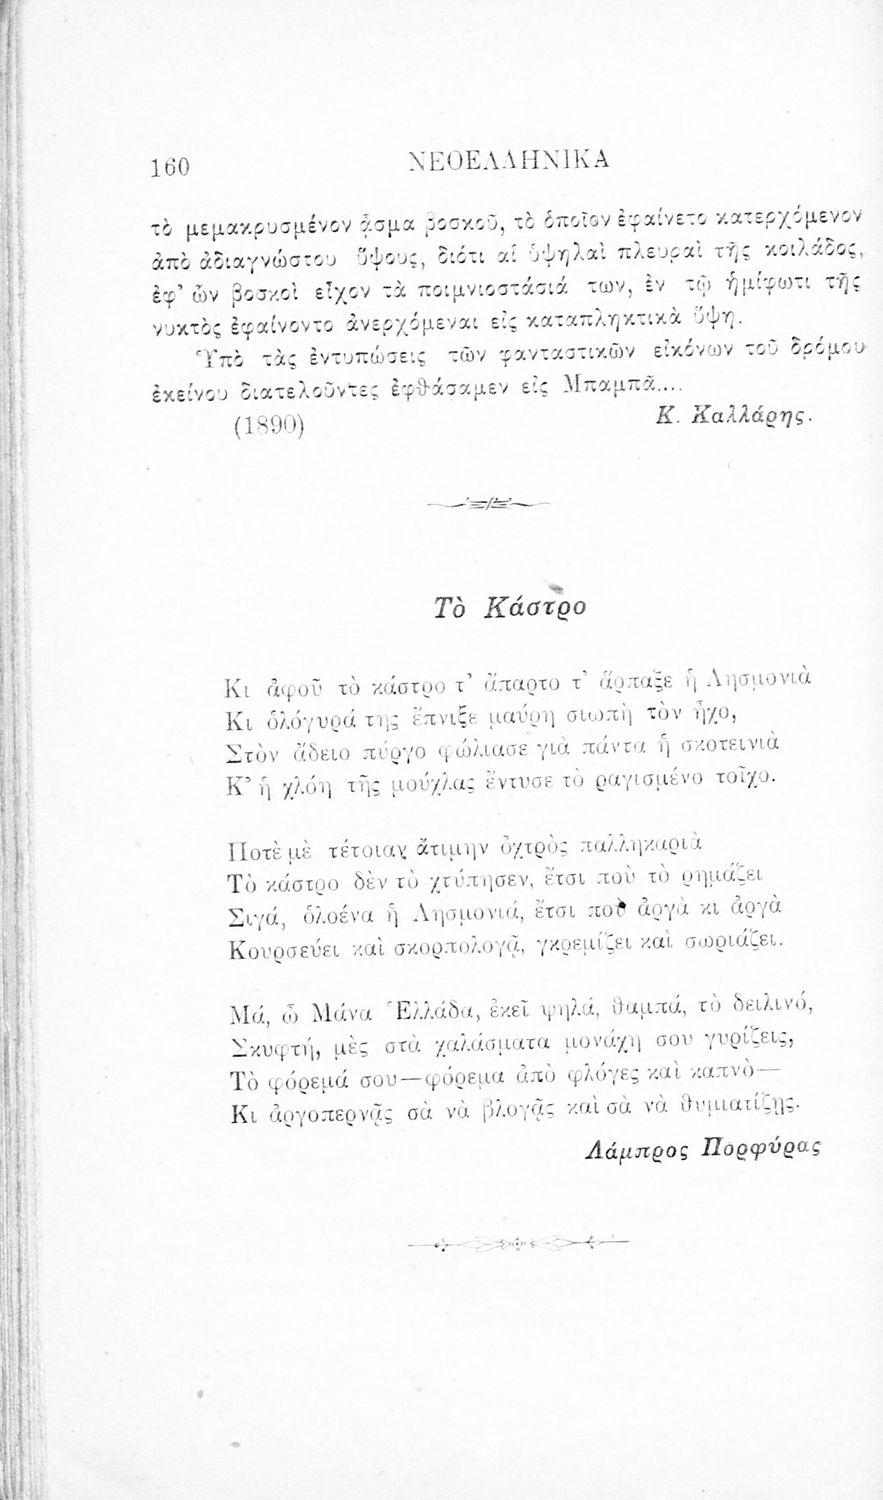 160
ΝΕΟΕΛΛΗΝΙΚΑ
τὸ μεμακρυσμένον ᾆσμα βοσκοῦ, τὸ ὁποῖον ἐφαίνετο κατερχόμενον
ἀπὸ ἀδιαγνώστου ὕψους, διότι αἱ ὑψηλαὶ πλευραὶ τῆς κοιλάδος,
ἐφ’ ὧν βοσκοὶ εἶχον τὰ ποιμνιοστάσιά των, ἐν τῷ ἡμίφωτι τῆς
νυκτὸς ἐφαίνοντο ἀνερχόμεναι εἰς καταπληκτικὰ ὕψη.
Ὑπὸ τὰς ἐντυπώσεις τῶν φανταστικῶν εἰκόνων τοῦ δρόμου
ἐκείνου διατελοῦντες ἐφθάσαμεν εἰς Μπαμπᾶ....
(1890)
Κ. Καλλάρης.
Τὸ Κάστρο
Κι ἀφοῦ τὸ κάστρο τ’ ἄπαρτο τ’ ἅρπαξε ἡ Λησμονιὰ
Κι ὁλόγυρά της ἔπνιξε μαύρη σιωπὴ τὸν ἦχο,
Στὸν ἄδειο πύργο φώλιασε γιὰ πάντα ἡ σκοτεινιὰ
Κ’ ἡ χλόη τῆς μούχλας ἔντυσε τὸ ραγισμένο τοῖχο.
Ποτὲ μὲ τέτοιαν ἄτιμην ὀχτρὸς παλληκαριὰ
Τὸ κάστρο δὲν τὸ χτύπησεν, ἔτσι ποὺ τὸ ρημάζει
Σιγά, ὁλοένα ἡ Λησμονιά, ἔτσι ποὺ ἀργὰ κι ἀργὰ
Κουρσεύει καὶ σκορπολογᾷ, γκρεμίζει καὶ σωριάζει.
Μά, ὦ Μάνα Ἑλλάδα, ἐκεῖ ψηλά, θαμπά, τὸ δειλινό,
Σκυφτή, μὲς στὰ χαλάσματα μονάχη σου γυρίζεις,
Τὸ φόρεμά σου—φόρεμα ἀπὸ φλόγες καὶ καπνὸ—
Κι ἀργοπερνᾷς σὰ νὰ βλογᾷς καὶ σὰ νὰ θυμιατίζῃς.
Λάμπρος Πορφύρας